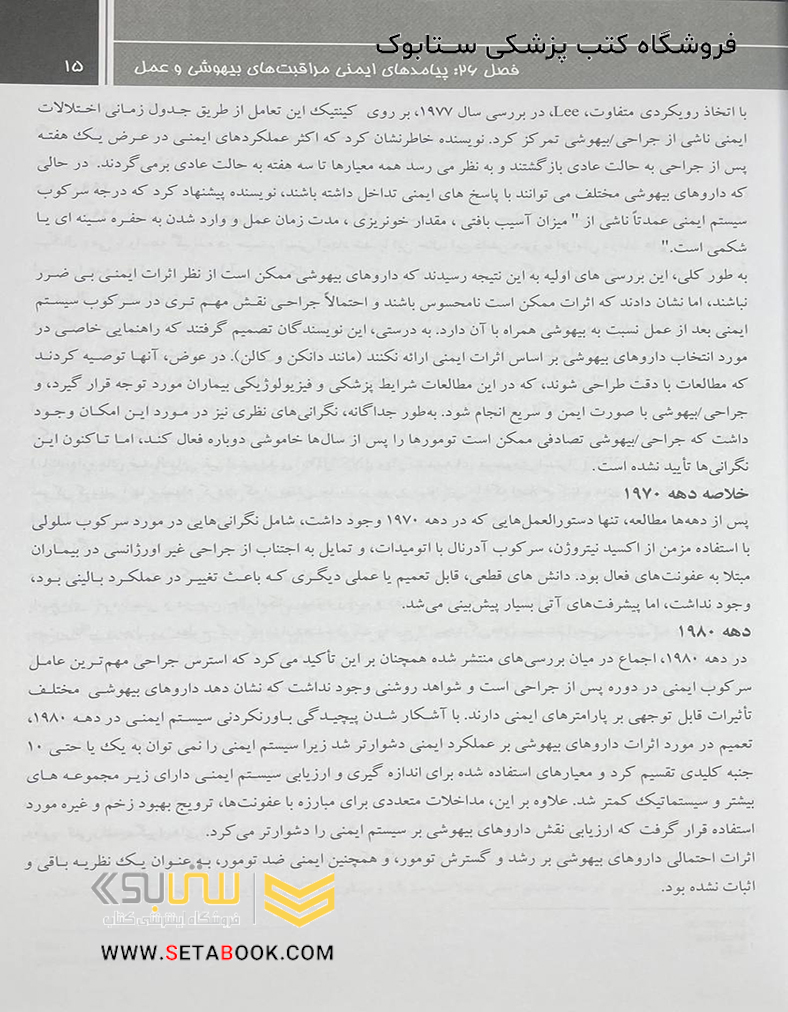 فروشگاه کتب پزشکی ستابوک
فصل ۲۶: پیامدهای ایمنی مراقبت‌های بیهوشی و عمل
۱۵
با اتخاذ رویکردی متفاوت، Lee، در بررسی سال ۱۹۷۷، بر روی کینتیک این تعامل از طریق جدول زمانی اختلالات
ایمنی ناشی از جراحی/بیهوشی تمرکز کرد. نویسنده خاطرنشان کرد که اکثر عملکردهای ایمنی در عرض یک هفته
پس از جراحی به حالت عادی بازگشتند و به نظر می رسد همه معیارها تا سه هفته به حالت عادی برمی‌گردند. در حالی
که داروهای بیهوشی مختلف می توانند با پاسخ های ایمنی تداخل داشته باشند، نویسنده پیشنهاد کرد که درجه سرکوب
سیستم ایمنی عمدتاً ناشی از " میزان آسیب بافتی ، مقدار خونریزی ، مدت زمان عمل و وارد شدن به حفره سینه ای یا
شکمی است."
به طور کلی، این بررسی های اولیه به این نتیجه رسیدند که داروهای بیهوشی ممکن است از نظر اثرات ایمنی بی ضرر
نباشند، اما نشان دادند که اثرات ممکن است نامحسوس باشند و احتمالاً جراحی نقش مهم تری در سرکوب سیستم
ایمنی بعد از عمل نسبت به بیهوشی همراه با آن دارد. به درستی، این نویسندگان تصمیم گرفتند که راهنمایی خاصی در
مورد انتخاب داروهای بیهوشی بر اساس اثرات ایمنی ارائه نکنند (مانند دانکن و کالن). در عوض، آنها توصیه کردند
که مطالعات با دقت طراحی شوند، که در این مطالعات شرایط پزشکی و فیزیولوژیکی بیماران مورد توجه قرار گیرد، و
جراحی/بیهوشی با صورت ایمن و سریع انجام شود. به‌طور جداگانه، نگرانی‌های نظری نیز در مورد این امکان وجود
داشت که جراحی/بیهوشی تصادفی ممکن است تومورها را پس از سال‌ها خاموشی دوباره فعال کند، اما تاکنون این
نگرانی‌ها تأیید نشده است.
خلاصه دهه ۱۹۷۰
پس از دهه‌ها مطالعه، تنها دستورالعمل‌هایی که در دهه ۱۹۷۰ وجود داشت، شامل نگرانی‌هایی در مورد سرکوب سلولی
با استفاده مزمن از اکسید نیتروژن، سرکوب آدرنال با اتومیدات، و تمایل به اجتناب از جراحی غیر اورژانسی در بیماران
مبتلا به عفونت‌های فعال بود. دانش های قطعی، قابل تعمیم یا عملی دیگری که باعث تغییر در عملکرد بالینی بود،
وجود نداشت، اما پیشرفت‌های آتی بسیار پیش‌بینی می‌شد.
دهه ۱۹۸۰
در دهه ۱۹۸۰، اجماع در میان بررسی‌های منتشر شده همچنان بر این تأکید می‌کرد که استرس جراحی مهم‌ترین عامل
سرکوب ایمنی در دوره پس از جراحی است و شواهد روشنی وجود نداشت که نشان دهد داروهای بیهوشی مختلف
تأثیرات قابل توجهی بر پارامترهای ایمنی دارند. با آشکار شدن پیچیدگی باورنکردنی سیستم ایمنی در دهه ۱۹۸۰،
تعمیم در مورد اثرات داروهای بیهوشی بر عملکرد ایمنی دشوارتر شد زیرا سیستم ایمنی را نمی توان به یک یا حتی ۱۰
جنبه کلیدی تقسیم کرد و معیارهای استفاده شده برای اندازه گیری و ارزیابی سیستم ایمنی دارای زیر مجموعه های
بیشتر و سیستماتیک کمتر شد. علاوه بر این، مداخلات متعددی برای مبارزه با عفونت‌ها، ترویج بهبود زخم و غیره مورد
استفاده قرار گرفت که ارزیابی نقش داروهای بیهوشی بر سیستم ایمنی را دشوارتر می‌کرد.
اثرات احتمالی داروهای بیهوشی بر رشد و گسترش تومور، و همچنین ایمنی ضد تومور، به عنوان یک نظریه باقی و
اثبات نشده بود.
ستابوک
فروشگاه اینترنتی کتاب
WWW.SETABOOK.COM